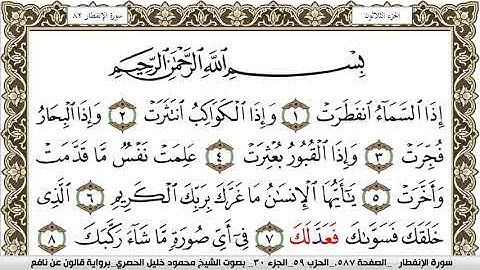 الجزء الثلاثون
سورة الإنفطار ٨٢
بِسْمِ اللَّهِ الرَّحْمَٰنِ الرَّحِيمِ
إِذَا السَّمَآءُ انفَطَرَتْ ١ وَإِذَا الْكَوَاكِبُ انتَثَرَتْ ٢ وَإِذَا الْبِحَارُ
فُجِّرَتْ ٣ وَإِذَا الْقُبُورُ بُعْثِرَتْ ٤ عَلِمَتْ نَفْسٌ مَّا قَدَّمَتْ
وَأَخَّرَتْ ٥ يَٰٓأَيُّهَا الْإِنسَٰنُ مَا غَرَّكَ بِرَبِّكَ الْكَرِيمِ ٦ الَّذِى
خَلَقَكَ فَسَوَّىٰكَ فَعَدَّلَكَ ٧ فِىٓ أَىِّ صُورَةٍ مَّا شَآءَ رَكَّبَكَ ٨
سورة الإنفطار _ الصفحة ٥٨٧. الحزب ٥٩_ الجزء ٣٠_ بصوت الشيخ محمود خليل الحصري_ برواية قالون عن نافع